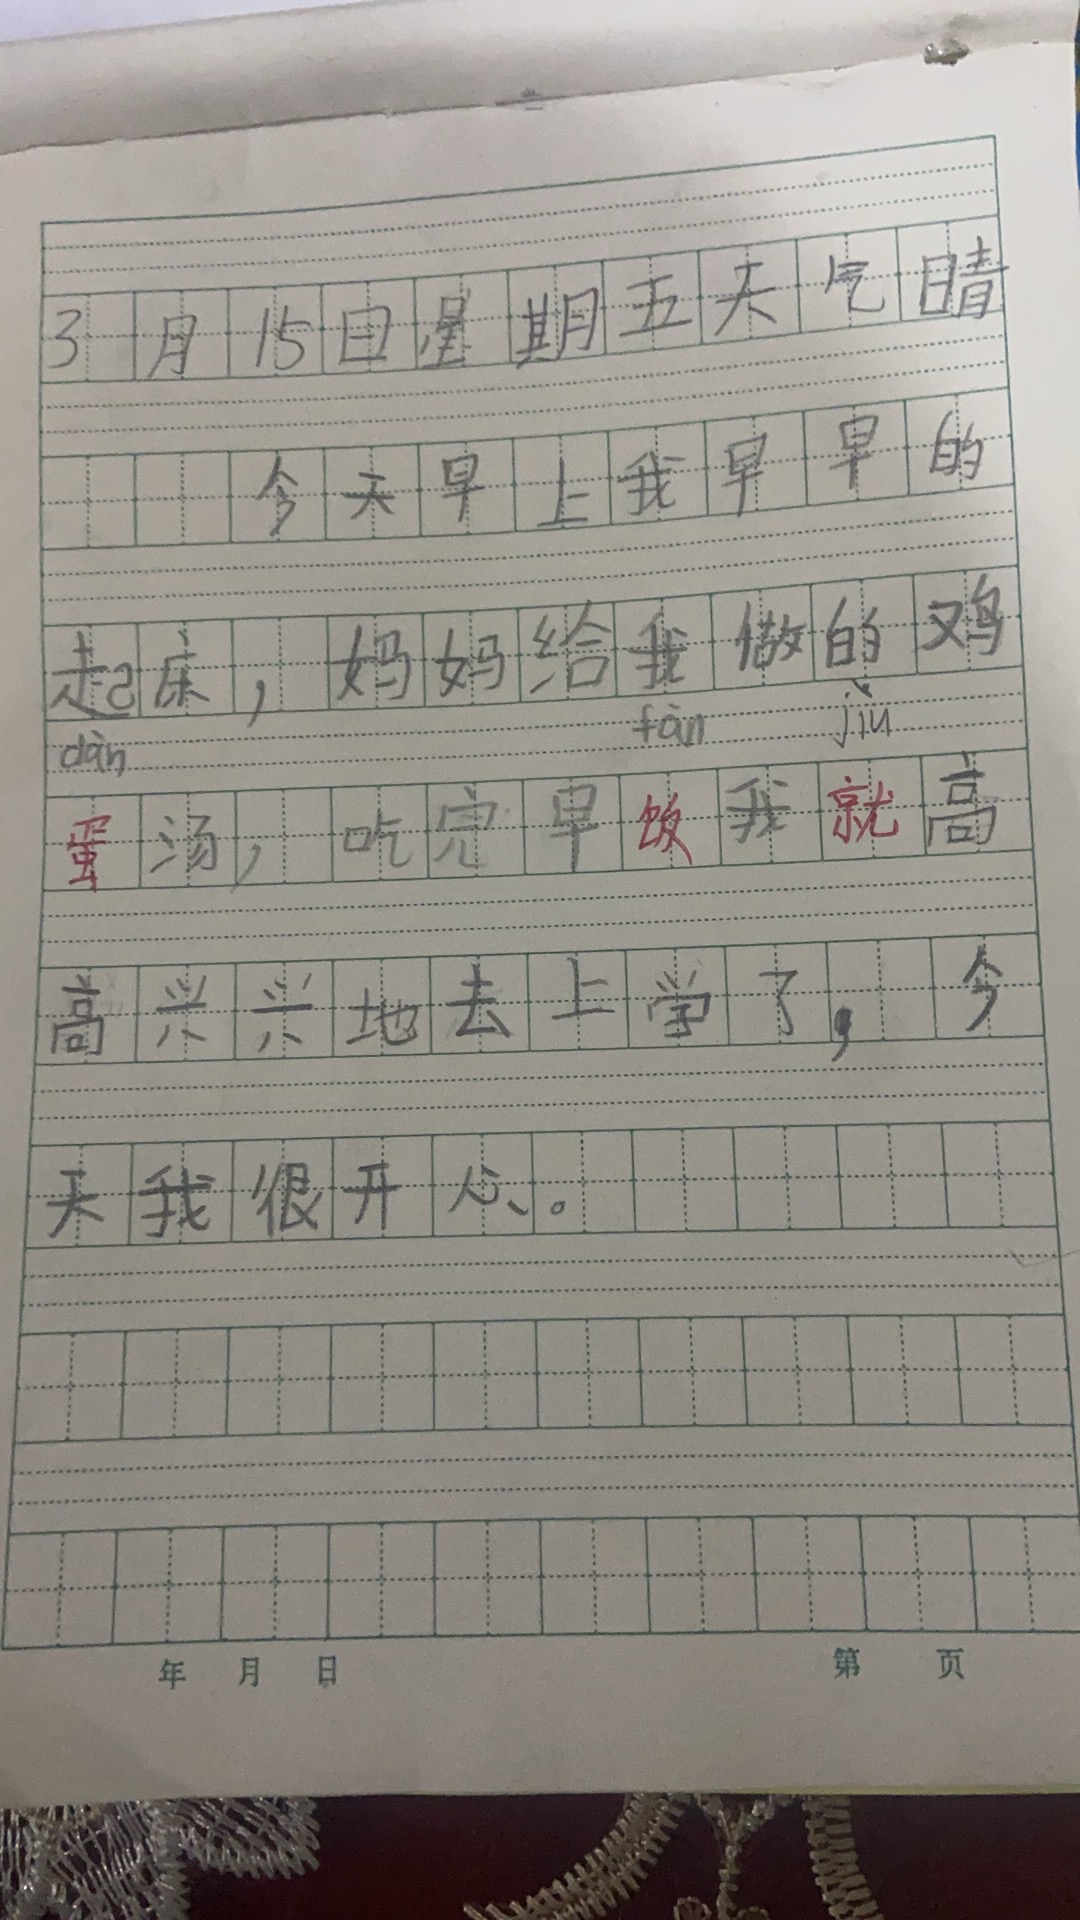 3月15日星期五天气晴
今天早上我早早的
起床，妈妈给我做的鸡
dàn fàn jiù
蛋汤，吃完早饭我就高
高兴兴地去上学了，今
天我很开心。
年 月 日 第 页